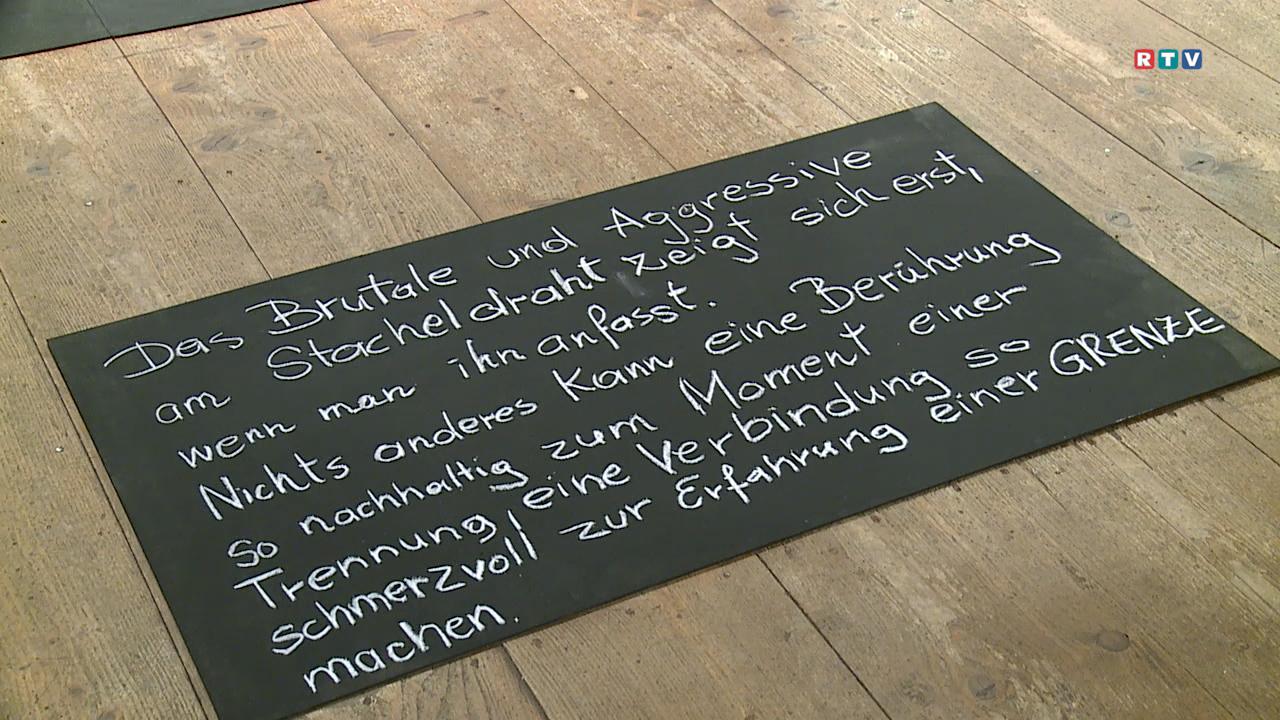 RTV
Das Brutale und Aggressive
am Stacheldraht zeigt sich erst,
wenn man ihn anfasst.
Nichts anderes kann eine Berührung
so nachhaltig zum Moment einer
Trennung, eine Verbindung so
schmerzvoll zur Erfahrung einer GRENZE
machen.